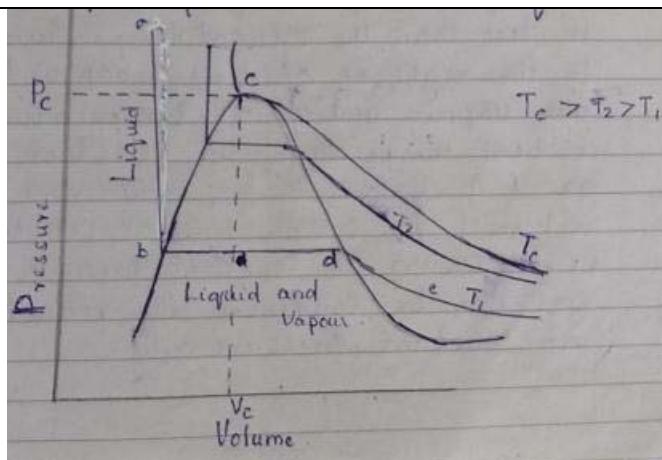 a
Pc
c
Tc > T2 > T1
Liquid
Pressure
T2
Tc
b
d
d
e
T1
Liquid and
Vapour
Vc
Volume